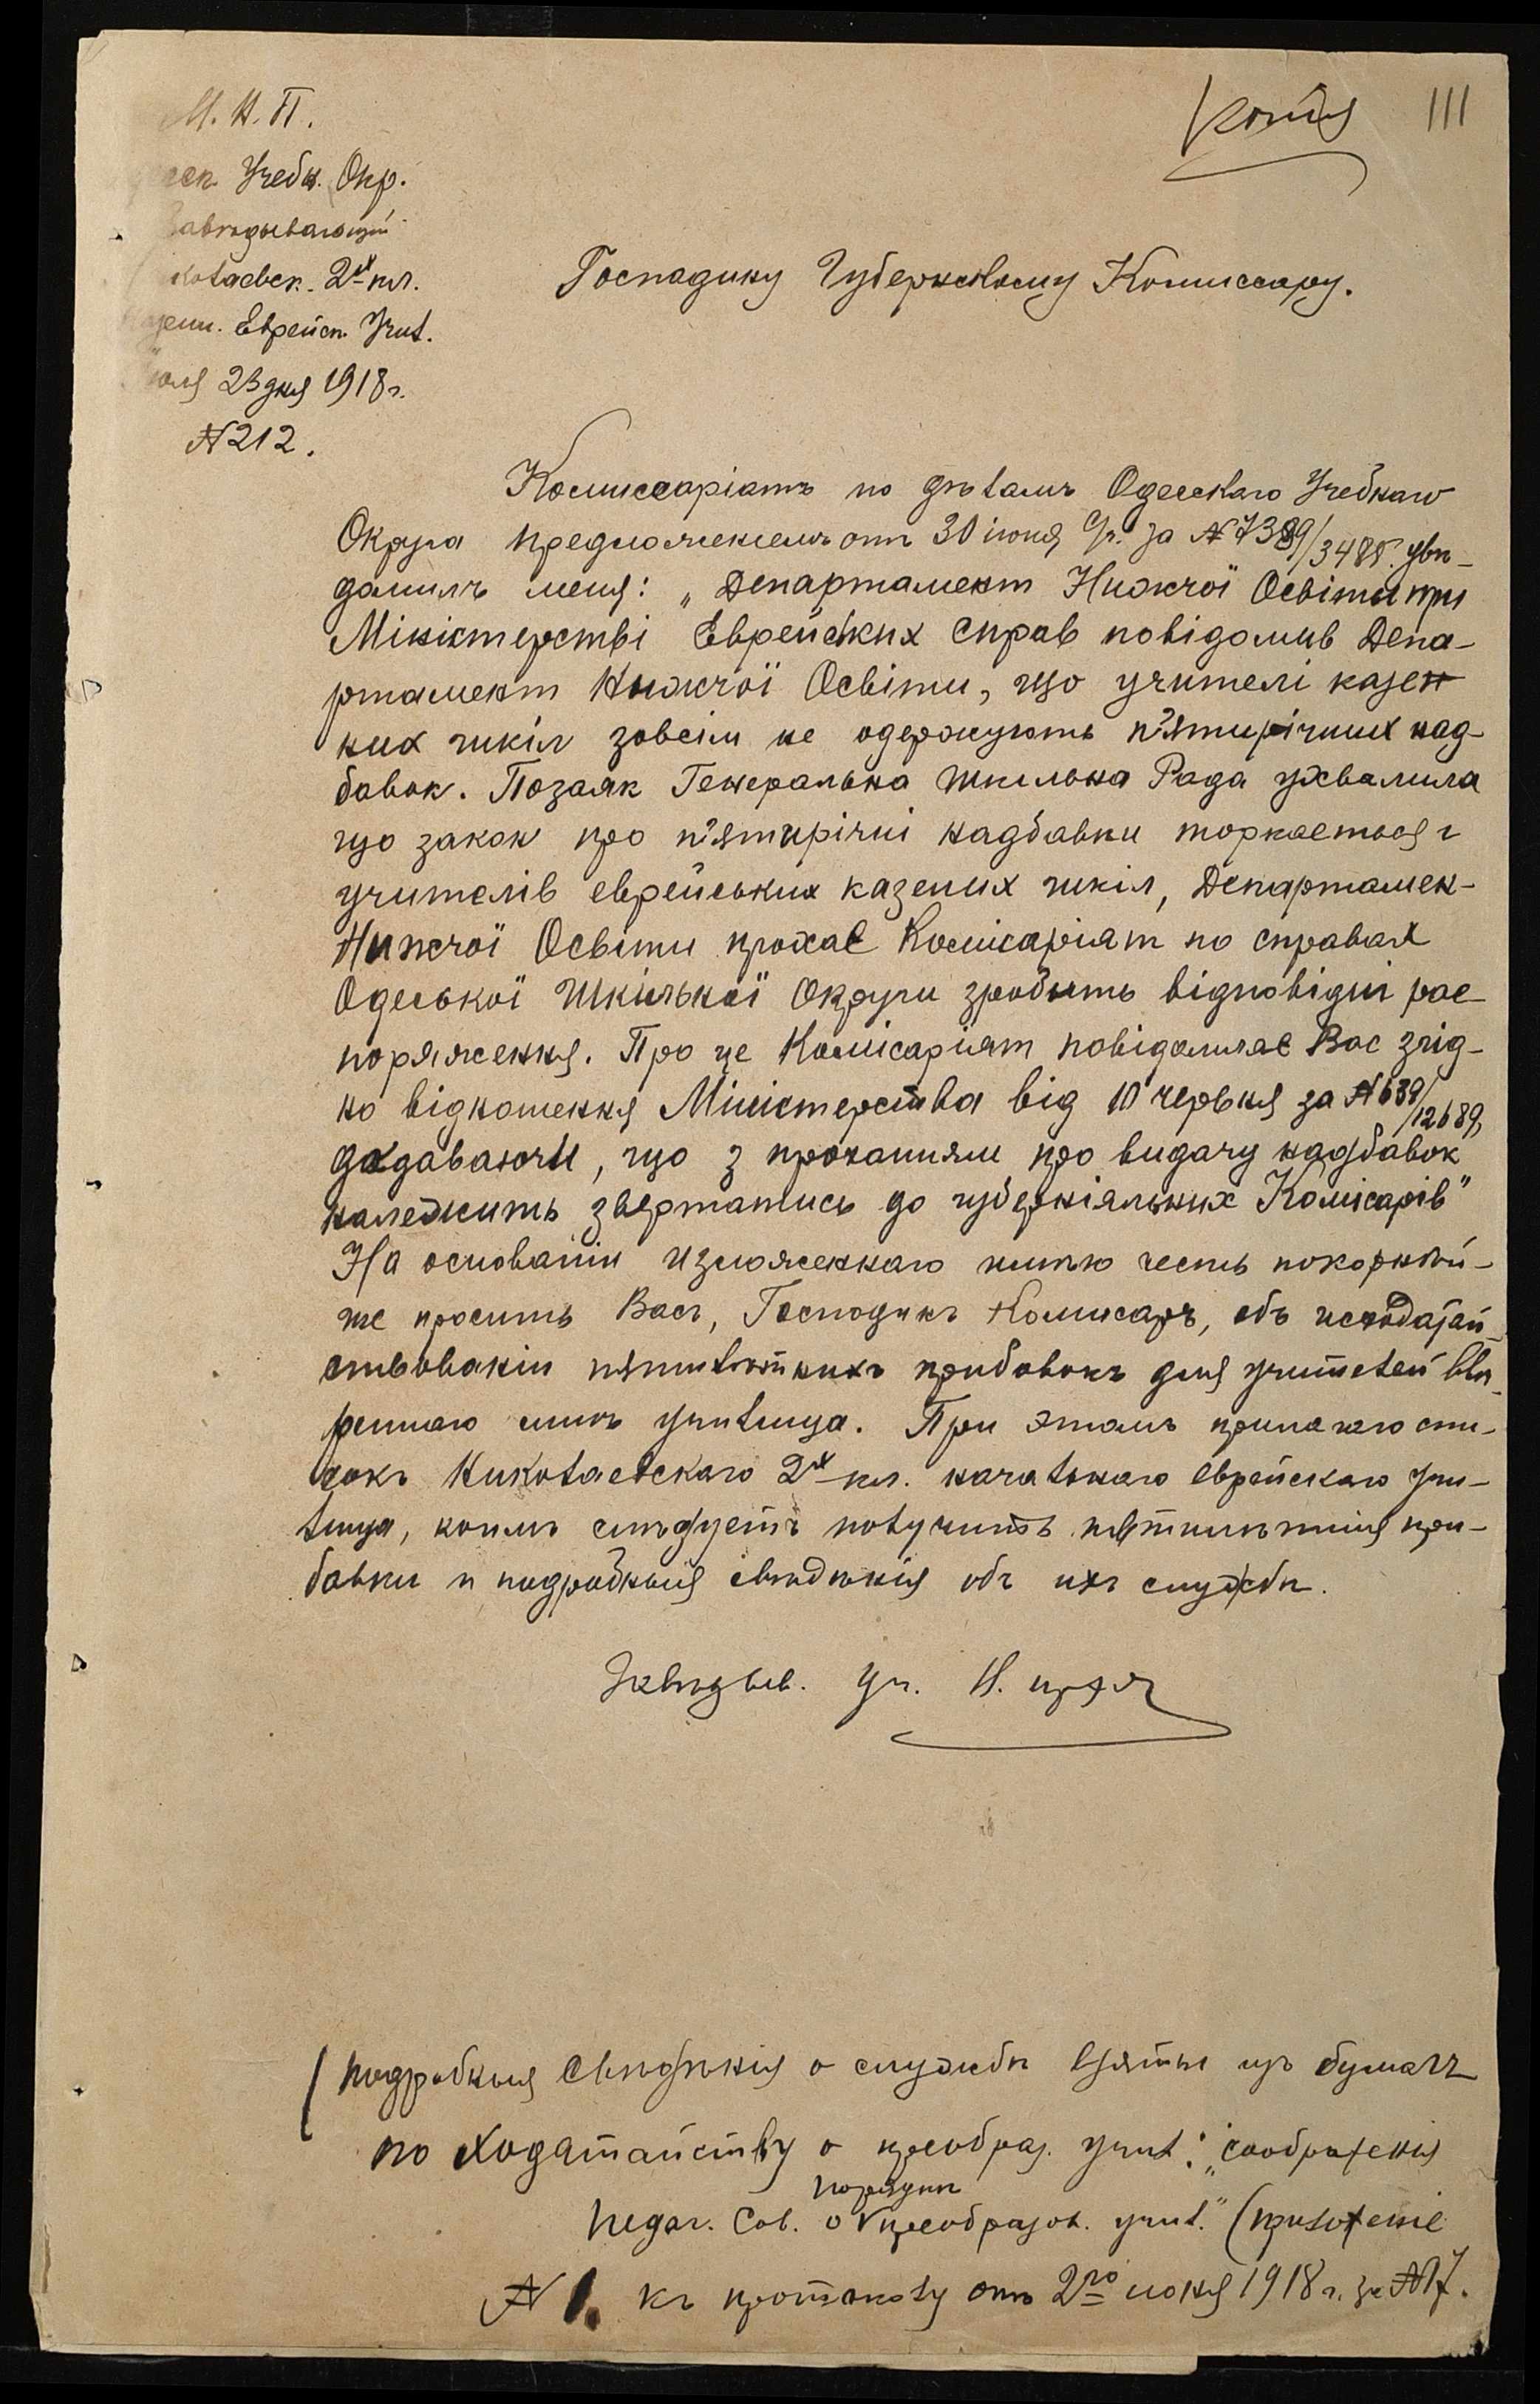 М. Н. П.
Копия 111
Учебн. Окр.
Завѣдывающій
Николаевск. 2хкл.
Казенн. Еврейск. Учил.
Іюля 23 дня 1918 г.
№ 212.
Господину Губернскому Комиссару.
Комиссаріатъ по дѣламъ Одесскаго Учебнаго
Округа предложеніемъ отъ 30 іюня с/г. за № 7389/3485 увѣ-
домилъ меня: „Департамент Нижчої Освіти при
Міністерстві Еврейських справ повідомив Депа-
ртамент Нижчої Освіти, що учителі казен
них шкіл зовсім не одержують п'ятирічних над-
бавок. Позаяк Генеральна Шкільна Рада ухвалила
що закон про п'ятирічні надбавки торкається і
учителів еврейських казених шкіл, Департамен-
Нижчої Освіти прохає Комісаріят по справах
Одеської Шкілької Округи зробить відповідні рас-
поряження. Про це Комісаріят повідомляє Вас згід-
но відношення Міністерства від 10 червня за № 639/12689,
додаваючи, що з проханнями про видачу надбавок
належить звертатись до губерніяльних Комісарів"
На основаніи изложеннаго имѣю честь покорнѣй-
ше просить Васъ, Господинъ Комисаръ, объ исходатай-
ствованіи пятилѣтнихъ прибавокъ для учителей ввѣ-
реннаго мнѣ училища. При этомъ прилагаю спи-
сокъ Николаевскаго 2х кл. начальнаго еврейскаго учи-
лища, коимъ слѣдуетъ получить пятилѣтнія при-
бавки и подробныя свѣдѣнія объ ихъ службѣ.
Завѣдыв. уч.
(Подробныя свѣдѣнія о службѣ взяты изъ бумагъ
по ходатайству о преобраз. учил.: „соображенія
порядкѣ
педаг. Сов. о √ преобразов. учил." (приложеніе
№ 1. къ протоколу отъ 2го іюня 1918 г. за № 17.